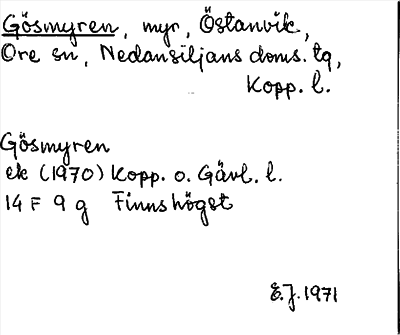 Gösmyren, myr, Östanvik,
Ore sn, Nedansiljans doms. tg,
Kopp. l.
Gösmyren
ek (1970) Kopp. o. Gävl. l.
14 F 9 g Finnshögst
E.J. 1971